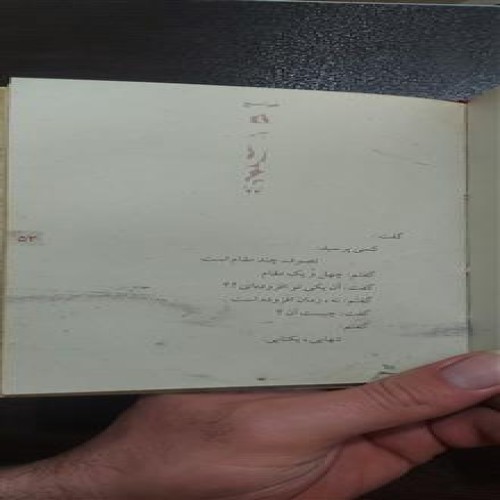 گفت:
کسی پرسید:
تصوف چند مقام است
گفتم: چهل و یک مقام
گفت: آن یکی تو افزوده‌ای؟؟
گفتم: نه، زمان افزوده است
گفت: چیست آن؟
گفتم:
تنهایی، یکتایی.
۵۳